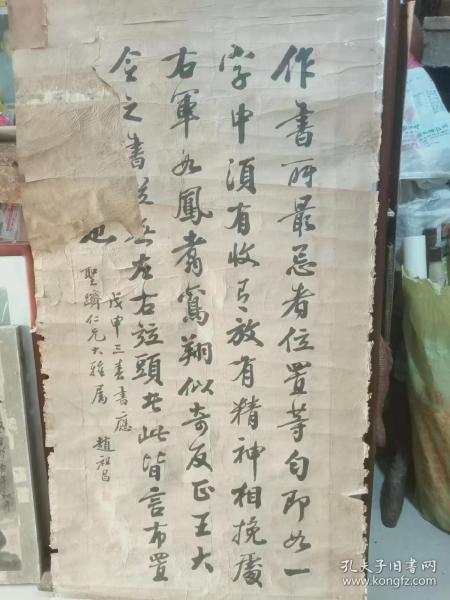 作書所最忌者位置等匀即如一
字中須有收有放有精神相挽處
右軍如鳳翥鸞翔似奇反正王大
令之書從無左右並頭者此皆言布置
也
戊申三春書應
聖躋仁兄大雅屬 趙祖昌
孔夫子旧书网
www.kongfz.com